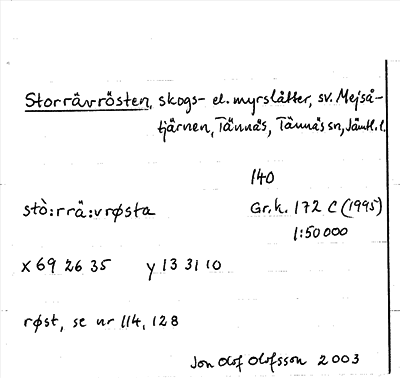 Storrävrösten, skogs- el. myrslåtter, sv. Mejså-
tjärnen, Tännäs, Tännäs sn, Jämtl. l.
140
stò:rrä:vrøsta Gr.k. 172 C (1995)
1:50 000
x 69 26 35 y 13 31 10
røst, se nr 114, 128
Jon Olof Olofsson 2003